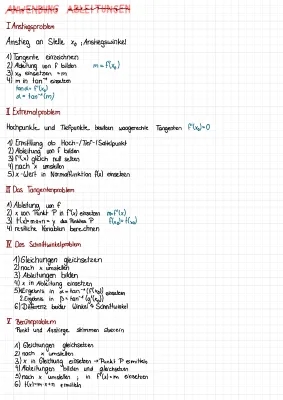 ANWENDUNG ABLEITUNGEN
I Anstiegsproblem
Anstieg an Stelle x₀; Anstiegswinkel
1) Tangente einzeichnen
2) Ableitung von f bilden m = f'(x₀)
3) x₀ einsetzen → m
4) m in tan⁻¹ einsetzen
tan α = f'(x₀)
α = tan⁻¹(m)
II Extremalproblem
Hochpunkte und Tiefpunkte besitzen waagerechte Tangenten f'(x₀)=0
1) Ermittlung ob Hoch-/Tief-/Sattelpunkt
2) Ableitung von f bilden
3) f'(x) gleich null setzen
4) nach x umstellen
5) x-Wert in Normalfunktion f(x) einsetzen
III Das Tangentenproblem
1) Ableitung von f
2) x von Punkt P in f'(x) einsetzen m=f'(x₀)
3) t(x)=m·x+n → y des Punktes P f(x₀)=t(x₀)
4) restliche Variablen berechnen
IV Das Schnittwinkelproblem
1) Gleichungen gleichsetzen
2) nach x umstellen
3) Ableitungen bilden
4) x in Ableitung einsetzen
5) 1.Ergebnis in α = tan⁻¹(f'(x₀)) einsetzen
2.Ergebnis in β = tan⁻¹(g'(x₀))
6) Differenz beider Winkel → Schnittwinkel
V Berührproblem
Punkt und Anstiege stimmen überein
1) Gleichungen gleichsetzen
2) nach x umstellen
3) x in Gleichung einsetzen → Punkt P ermitteln
4) Ableitungen bilden und gleichsetzen
5) nach x umstellen ; in f'(x)=m einsetzen
6) t(x)=m·x+n ermitteln